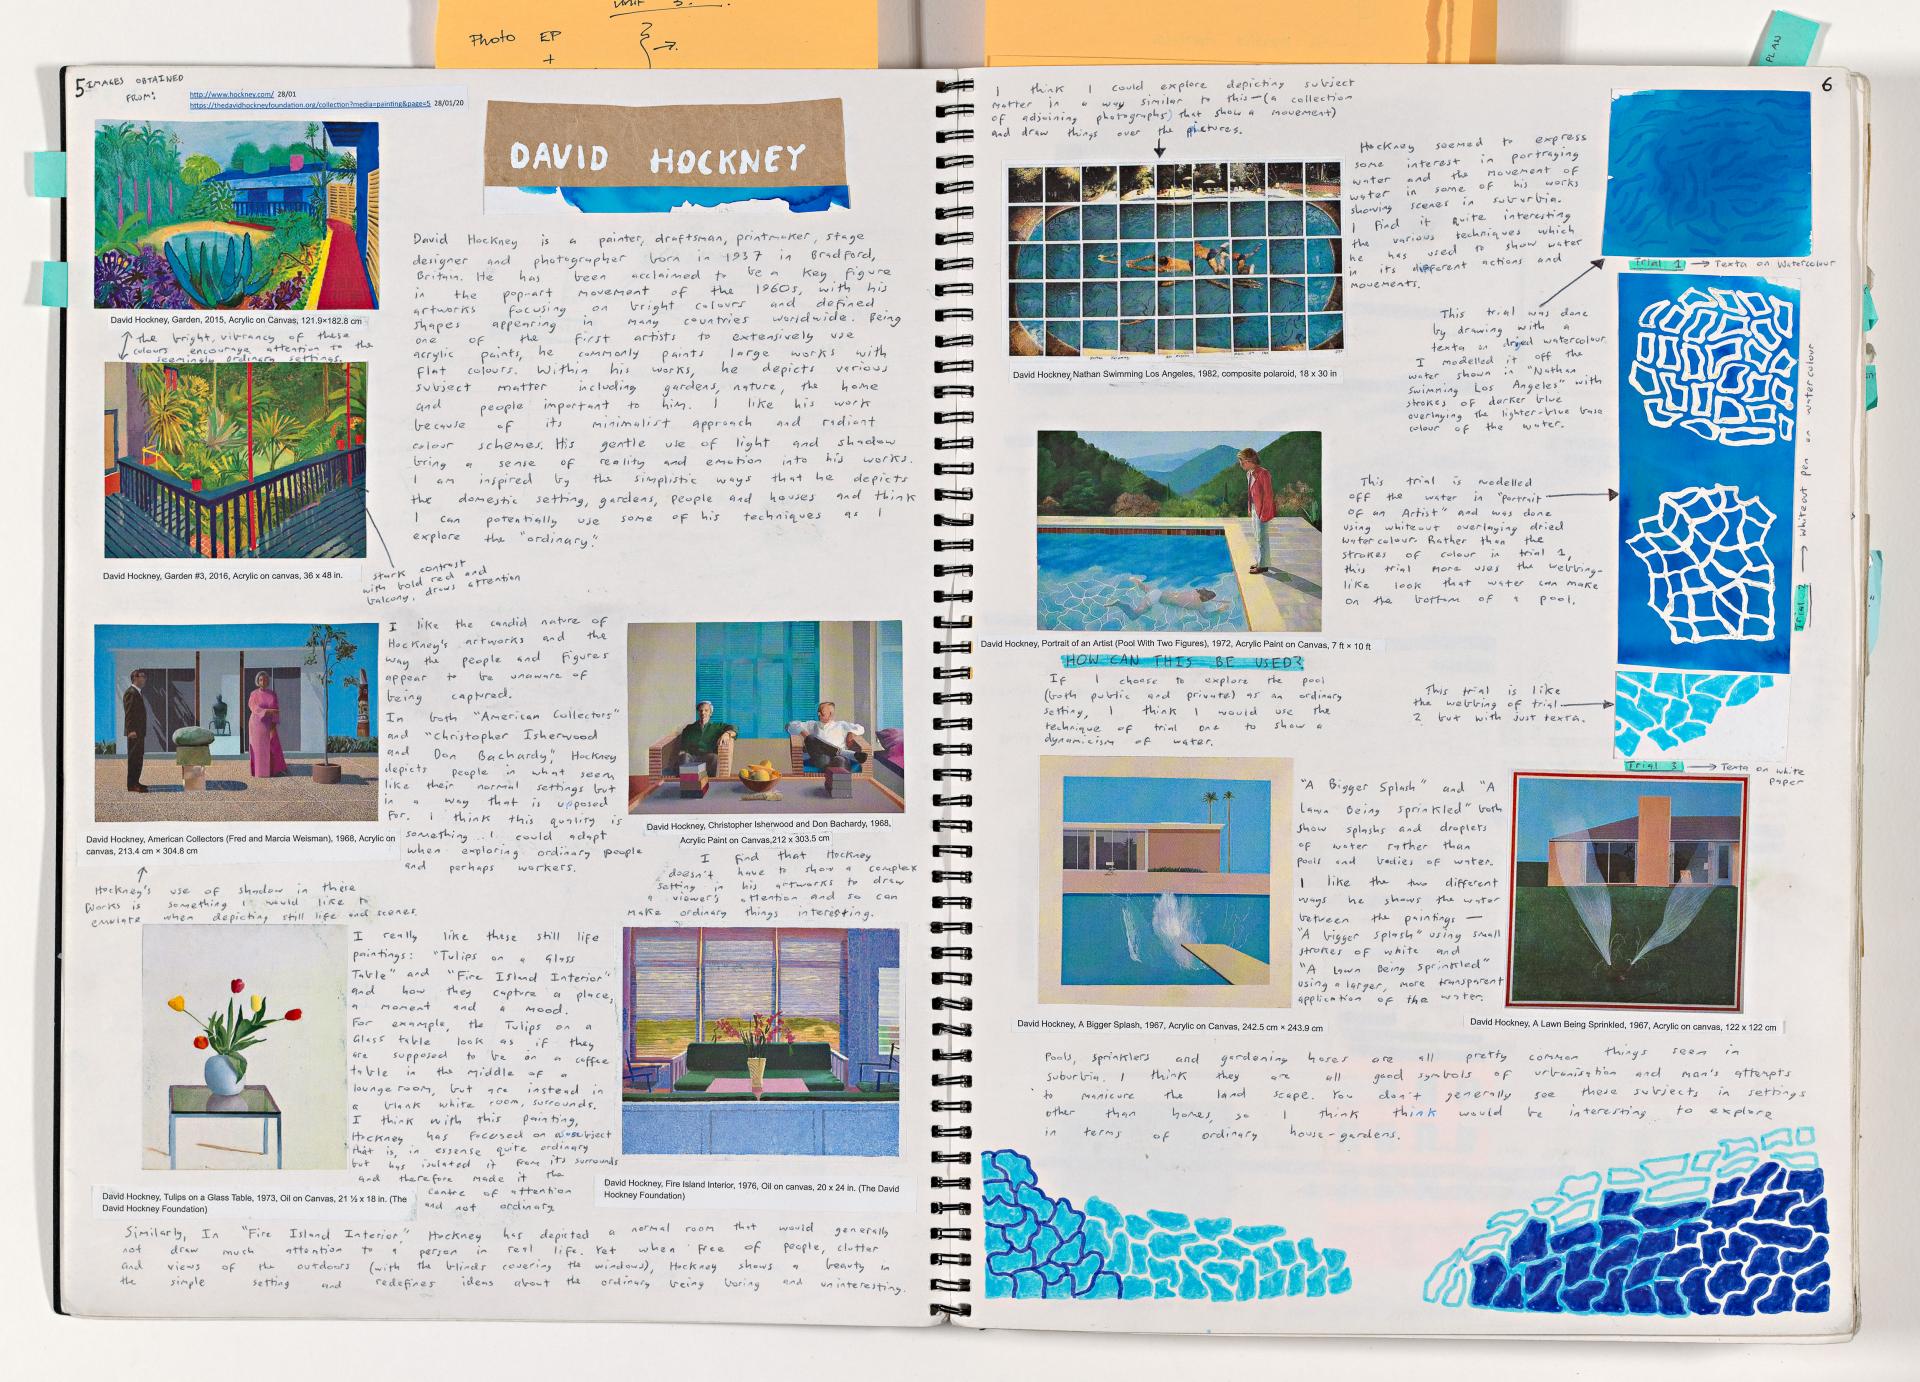 Unit 3.
Photo EP
+
PLAN
5
IMAGES OBTAINED
FROM:
http://www.hockney.com/ 28/01
https://thedavidhockneyfoundation.org/collection?media=painting&page=5 28/01/20
DAVID HOCKNEY
David Hockney, Garden, 2015, Acrylic on Canvas, 121.9×182.8 cm
The bright, vibrancy of these
colours encourage attention to the
seemingly ordinary settings.
David Hockney, Garden #3, 2016, Acrylic on canvas, 36 x 48 in.
stark contrast
with bold red and
balcony, draws attention
David Hockney is a painter, draftsman, printmaker, stage
designer and photographer born in 1937 in Bradford,
Britain. He has been acclaimed to be a key figure
in the pop-art movement of the 1960s, with his
artworks focusing on bright colours and defined
shapes appearing in many countries worldwide. Being
one of the first artists to extensively use
acrylic paints, he commonly paints large works with
flat colours. Within his works, he depicts various
subject matter including gardens, nature, the home
and people important to him. I like his work
because of its minimalist approach and radiant
colour schemes. His gentle use of light and shadow
bring a sense of reality and emotion into his works.
I am inspired by the simplistic ways that he depicts
the domestic setting, gardens, people and houses and think
I can potentially use some of his techniques as I
explore the "ordinary."
David Hockney, American Collectors (Fred and Marcia Weisman), 1968, Acrylic on
canvas, 213.4 cm × 304.8 cm
Hockney's use of shadow in these
works is something I would like to
emulate when depicting still life and scenes.
I like the candid nature of
Hockney's artworks and the
way the people and figures
appear to be unaware of
being captured.
In both "American Collectors"
and "Christopher Isherwood
and Don Bachardy," Hockney
depicts people in what seem
like their normal settings but
in a way that is upposed
for. I think this quality is
something I could adapt
when exploring ordinary people
and perhaps workers.
David Hockney, Christopher Isherwood and Don Bachardy, 1968,
Acrylic Paint on Canvas,212 x 303.5 cm
I find that Hockney
doesn't have to show a complex
setting in his artworks to draw
a viewer's attention and so can
make ordinary things interesting.
David Hockney, Tulips on a Glass Table, 1973, Oil on Canvas, 21 ½ x 18 in. (The
David Hockney Foundation)
I really like these still life
paintings: "Tulips on a Glass
Table" and "Fire Island Interior"
and how they capture a place,
a moment and a mood.
For example, the Tulips on a
Glass table look as if they
are supposed to be on a coffee
table in the middle of a
lounge room, but are instead in
a blank white room, surrounds.
I think with this painting,
Hockney has focused on a subject
that is, in essense quite ordinary
but has isolated it from its surrounds
and therefore made it the
centre of attention
and not ordinary.
David Hockney, Fire Island Interior, 1976, Oil on canvas, 20 x 24 in. (The David
Hockney Foundation)
Similarly, In "Fire Island Interior," Hockney has depicted a normal room that would generally
not draw much attention to a person in real life. Yet when free of people, clutter
and views of the outdoors (with the blinds covering the windows), Hockney shows a beauty in
the simple setting and redefines ideas about the ordinary being boring and uninteresting.
6
I think I could explore depicting subject
matter in a way similar to this - (a collection
of adjoining photographs) that show a movement)
and draw things over the pictures.
David Hockney,Nathan Swimming Los Angeles, 1982, composite polaroid, 18 x 30 in
Hockney seemed to express
some interest in portraying
water and the movement of
water in some of his works
showing scenes in suburbia.
I find it quite interesting
the various techniques which
he has used to show water
in its different actions and
movements.
Trial 1 → Texta on Watercolour
This trial was done
by drawing with a
texta on dryed watercolour.
I modelled it off the
water shown in "Nathan
Swimming Los Angeles" with
strokes of darker blue
overlaying the lighter-blue base
colour of the water.
David Hockney, Portrait of an Artist (Pool With Two Figures), 1972, Acrylic Paint on Canvas, 7 ft × 10 ft
This trial is modelled
off the water in "Portrait
of an Artist" and was done
using whiteout overlaying dried
watercolour. Rather than the
strokes of colour in trial 1,
this trial more uses the webbing-
like look that water can make
on the bottom of a pool.
Trial 2 → whiteout pen on watercolour
HOW CAN THIS BE USED?
If I choose to explore the pool
(both public and private) as an ordinary
setting, I think I would use the
technique of trial one to show a
dynamicism of water.
This trial is like
the webbing of trial
2 but with just texta.
Trial 3 → Texta on white
paper
"A Bigger Splash" and "A
Lawn Being sprinkled" both
show splashs and droplets
of water rather than
pools and bodies of water.
I like the two different
ways he shows the water
between the paintings —
"A bigger splash" using small
strokes of white and
"A Lawn Being sprinkled"
using a larger, more transparent
application of the water.
David Hockney, A Bigger Splash, 1967, Acrylic on Canvas, 242.5 cm × 243.9 cm
David Hockney, A Lawn Being Sprinkled, 1967, Acrylic on canvas, 122 x 122 cm
Pools, sprinklers and gardening hoses are all pretty common things seen in
suburbia. I think they are all good symbols of urbanisation and man's attempts
to manicure the land scape. You don't generally see these subjects in settings
other than homes, so I think think would be interesting to explore
in terms of ordinary house-gardens.